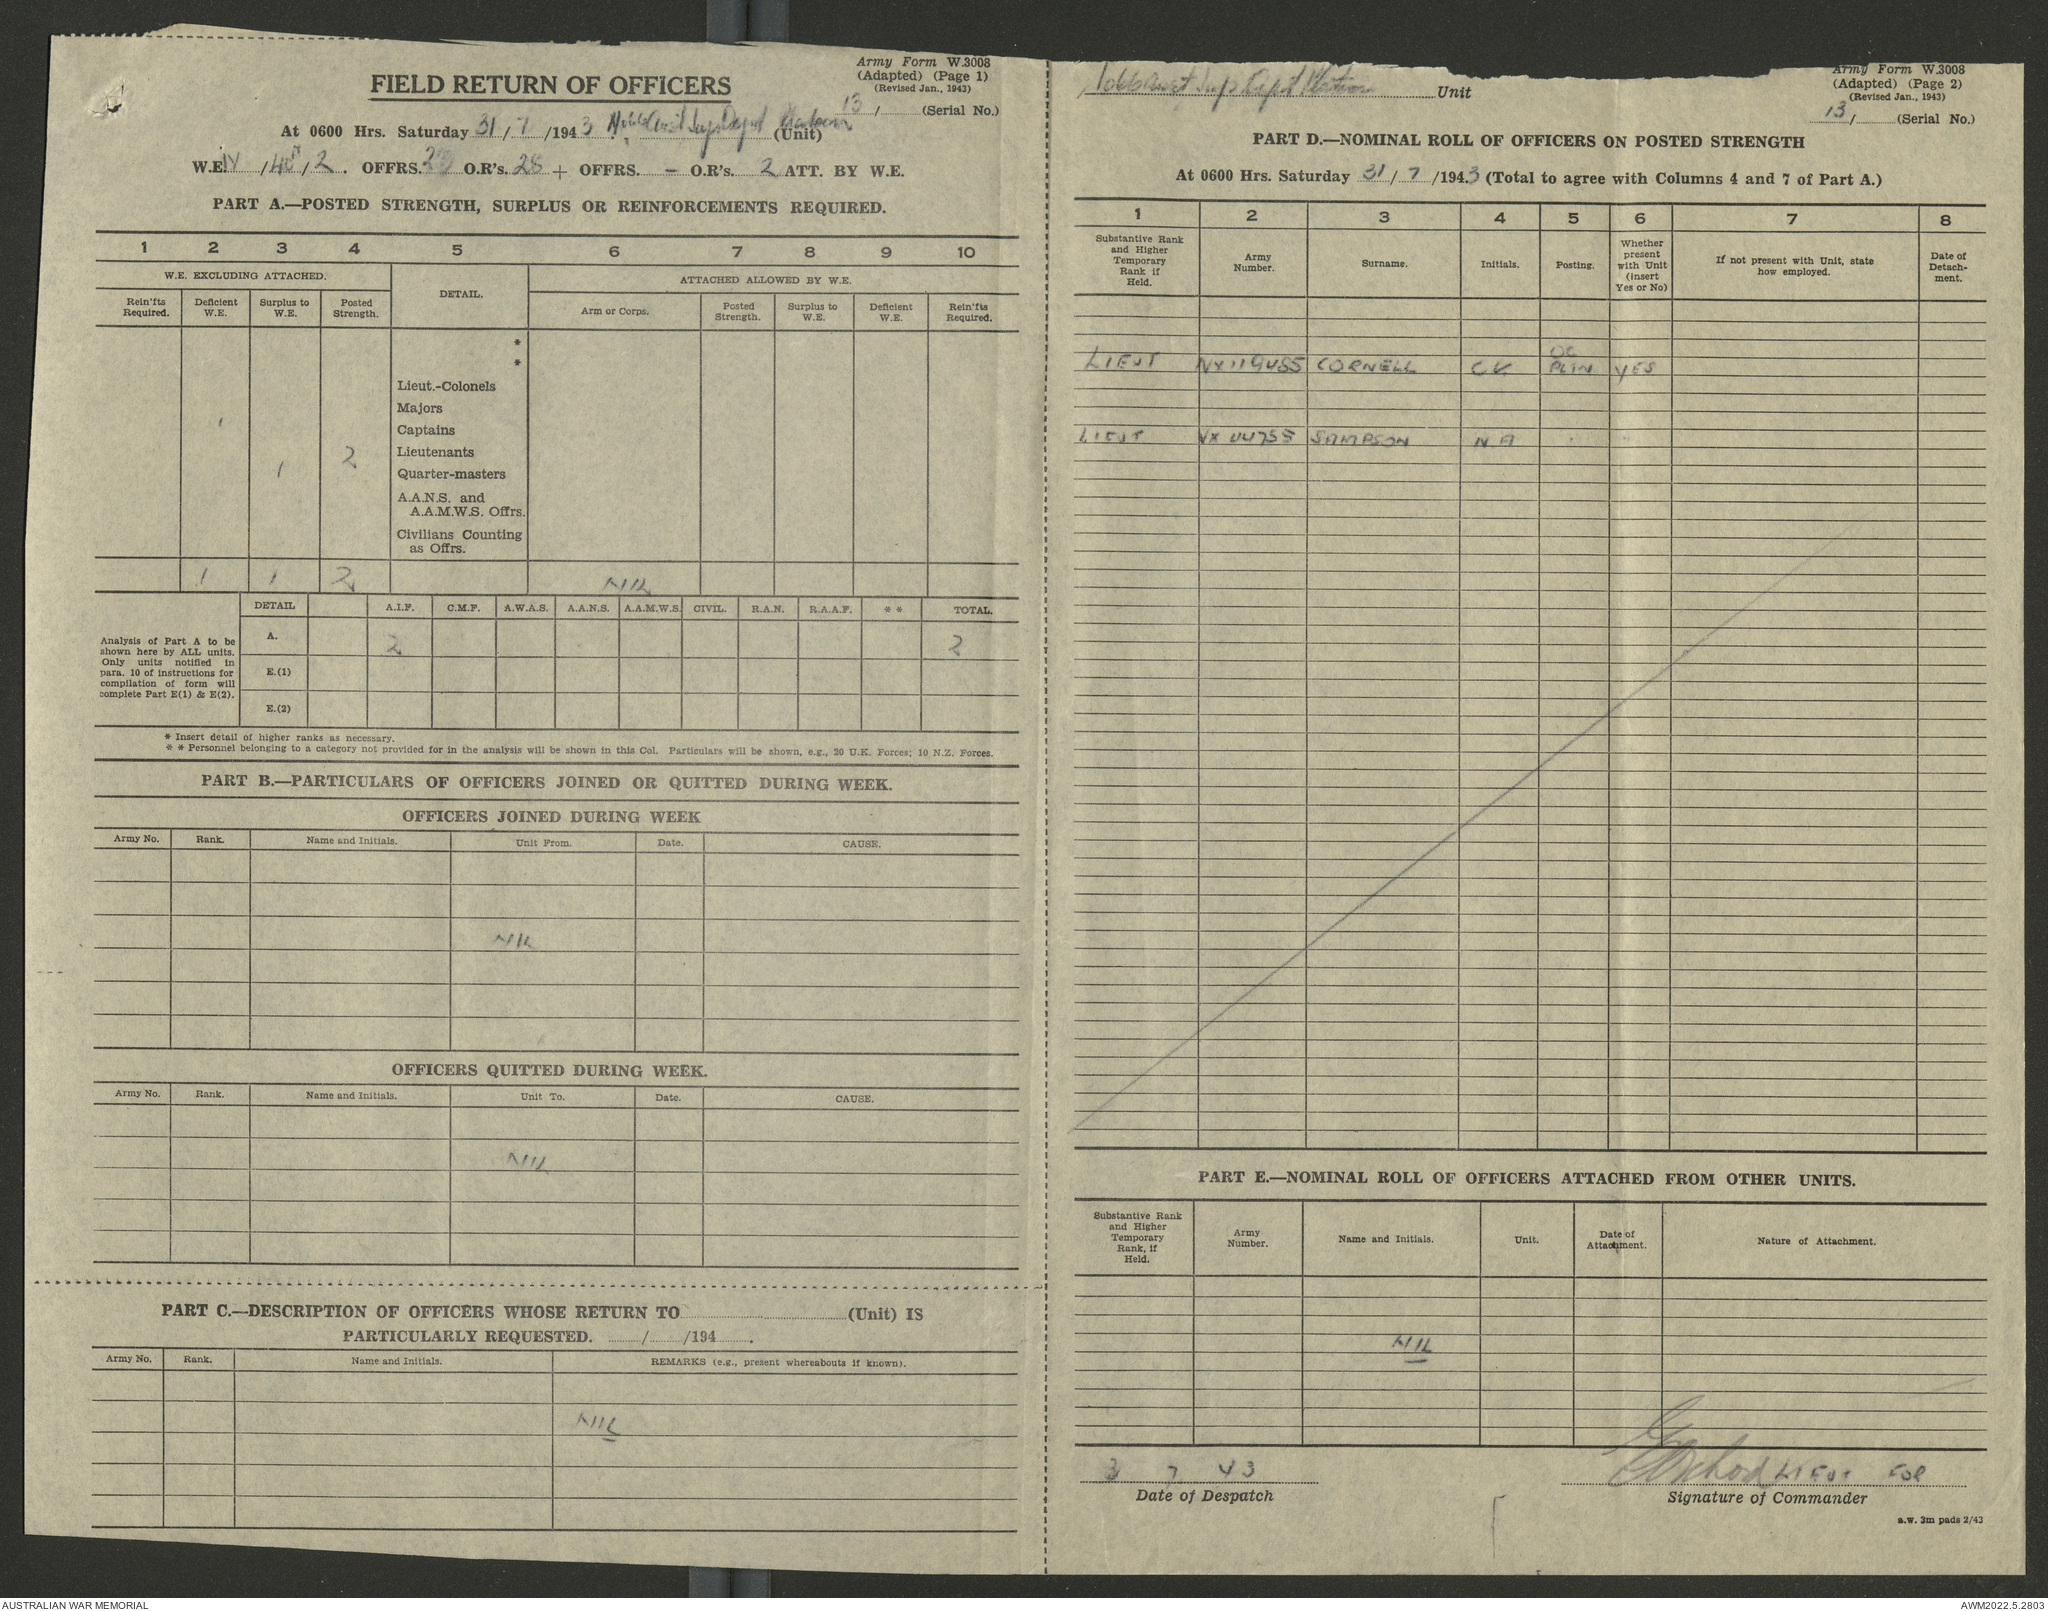 Army Form W.3008
(Adapted) (Page 1)
(Revised Jan., 1943)
FIELD RETURN OF OFFICERS
13 / (Serial No.)
At 0600 Hrs. Saturday 31 / 7 /1943 Aust Sup Depot Platoon (Unit)
W.E. IV / / 2 . OFFRS. O.R's. 28 + OFFRS. – O.R's. 2 ATT. BY W.E.
PART A.—POSTED STRENGTH, SURPLUS OR REINFORCEMENTS REQUIRED.
1 2 3 4 5 6 7 8 9 10
W.E. EXCLUDING ATTACHED. DETAIL. ATTACHED ALLOWED BY W.E.
Rein'fts Required. Deficient W.E. Surplus to W.E. Posted Strength. Arm or Corps. Posted Strength. Surplus to W.E. Deficient W.E. Rein'fts Required.
*
*
Lieut.-Colonels
Majors
1 Captains
2 Lieutenants
1 Quarter-masters
A.A.N.S. and
A.A.M.W.S. Offrs.
Civilians Counting
as Offrs.
1 1 2 NIL
DETAIL A.I.F. C.M.F. A.W.A.S. A.A.N.S. A.A.M.W.S. CIVIL. R.A.N. R.A.A.F. * * TOTAL.
Analysis of Part A to be
shown here by ALL units.
Only units notified in
para. 10 of instructions for
compilation of form will
complete Part E(1) & E(2).
A. 2 2
E.(1)
E.(2)
* Insert detail of higher ranks as necessary.
* * Personnel belonging to a category not provided for in the analysis will be shown in this Col. Particulars will be shown, e.g., 20 U.K. Forces; 10 N.Z. Forces.
PART B.—PARTICULARS OF OFFICERS JOINED OR QUITTED DURING WEEK.
OFFICERS JOINED DURING WEEK
Army No. Rank. Name and Initials. Unit From. Date. CAUSE.
NIL
OFFICERS QUITTED DURING WEEK.
Army No. Rank. Name and Initials. Unit To. Date. CAUSE.
NIL
PART C.—DESCRIPTION OF OFFICERS WHOSE RETURN TO (Unit) IS
PARTICULARLY REQUESTED. / /194 .
Army No. Rank. Name and Initials. REMARKS (e.g., present whereabouts if known).
NIL
Army Form W.3008
(Adapted) (Page 2)
(Revised Jan., 1943)
1066 Aust Sup Depot Platoon Unit
13 / (Serial No.)
PART D.—NOMINAL ROLL OF OFFICERS ON POSTED STRENGTH
At 0600 Hrs. Saturday 31 / 7 /1943 (Total to agree with Columns 4 and 7 of Part A.)
1 2 3 4 5 6 7 8
Substantive Rank and Higher Temporary Rank if Held. Army Number. Surname. Initials. Posting. Whether present with Unit (insert Yes or No) If not present with Unit, state how employed. Date of Detach-ment.
LIEUT NX119485 CORNELL C K OC PLTN YES
LIEUT SAMPSON N A
PART E.—NOMINAL ROLL OF OFFICERS ATTACHED FROM OTHER UNITS.
Substantive Rank and Higher Temporary Rank, if Held. Army Number. Name and Initials. Unit. Date of Attachment. Nature of Attachment.
NIL
3 7 43
LIEUT FOR
Date of Despatch
Signature of Commander
a.w. 3m pads 2/43
AUSTRALIAN WAR MEMORIAL
AWM2022.5.2803